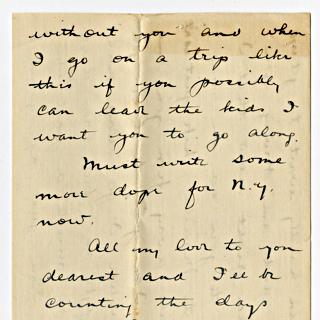 without you and when
I go on a trip like
this if you possibly
can leave the kids I
want you to go along.
Must write some
more dope for N.Y.
now.
All my love to you
dearest and I'll be
counting the days